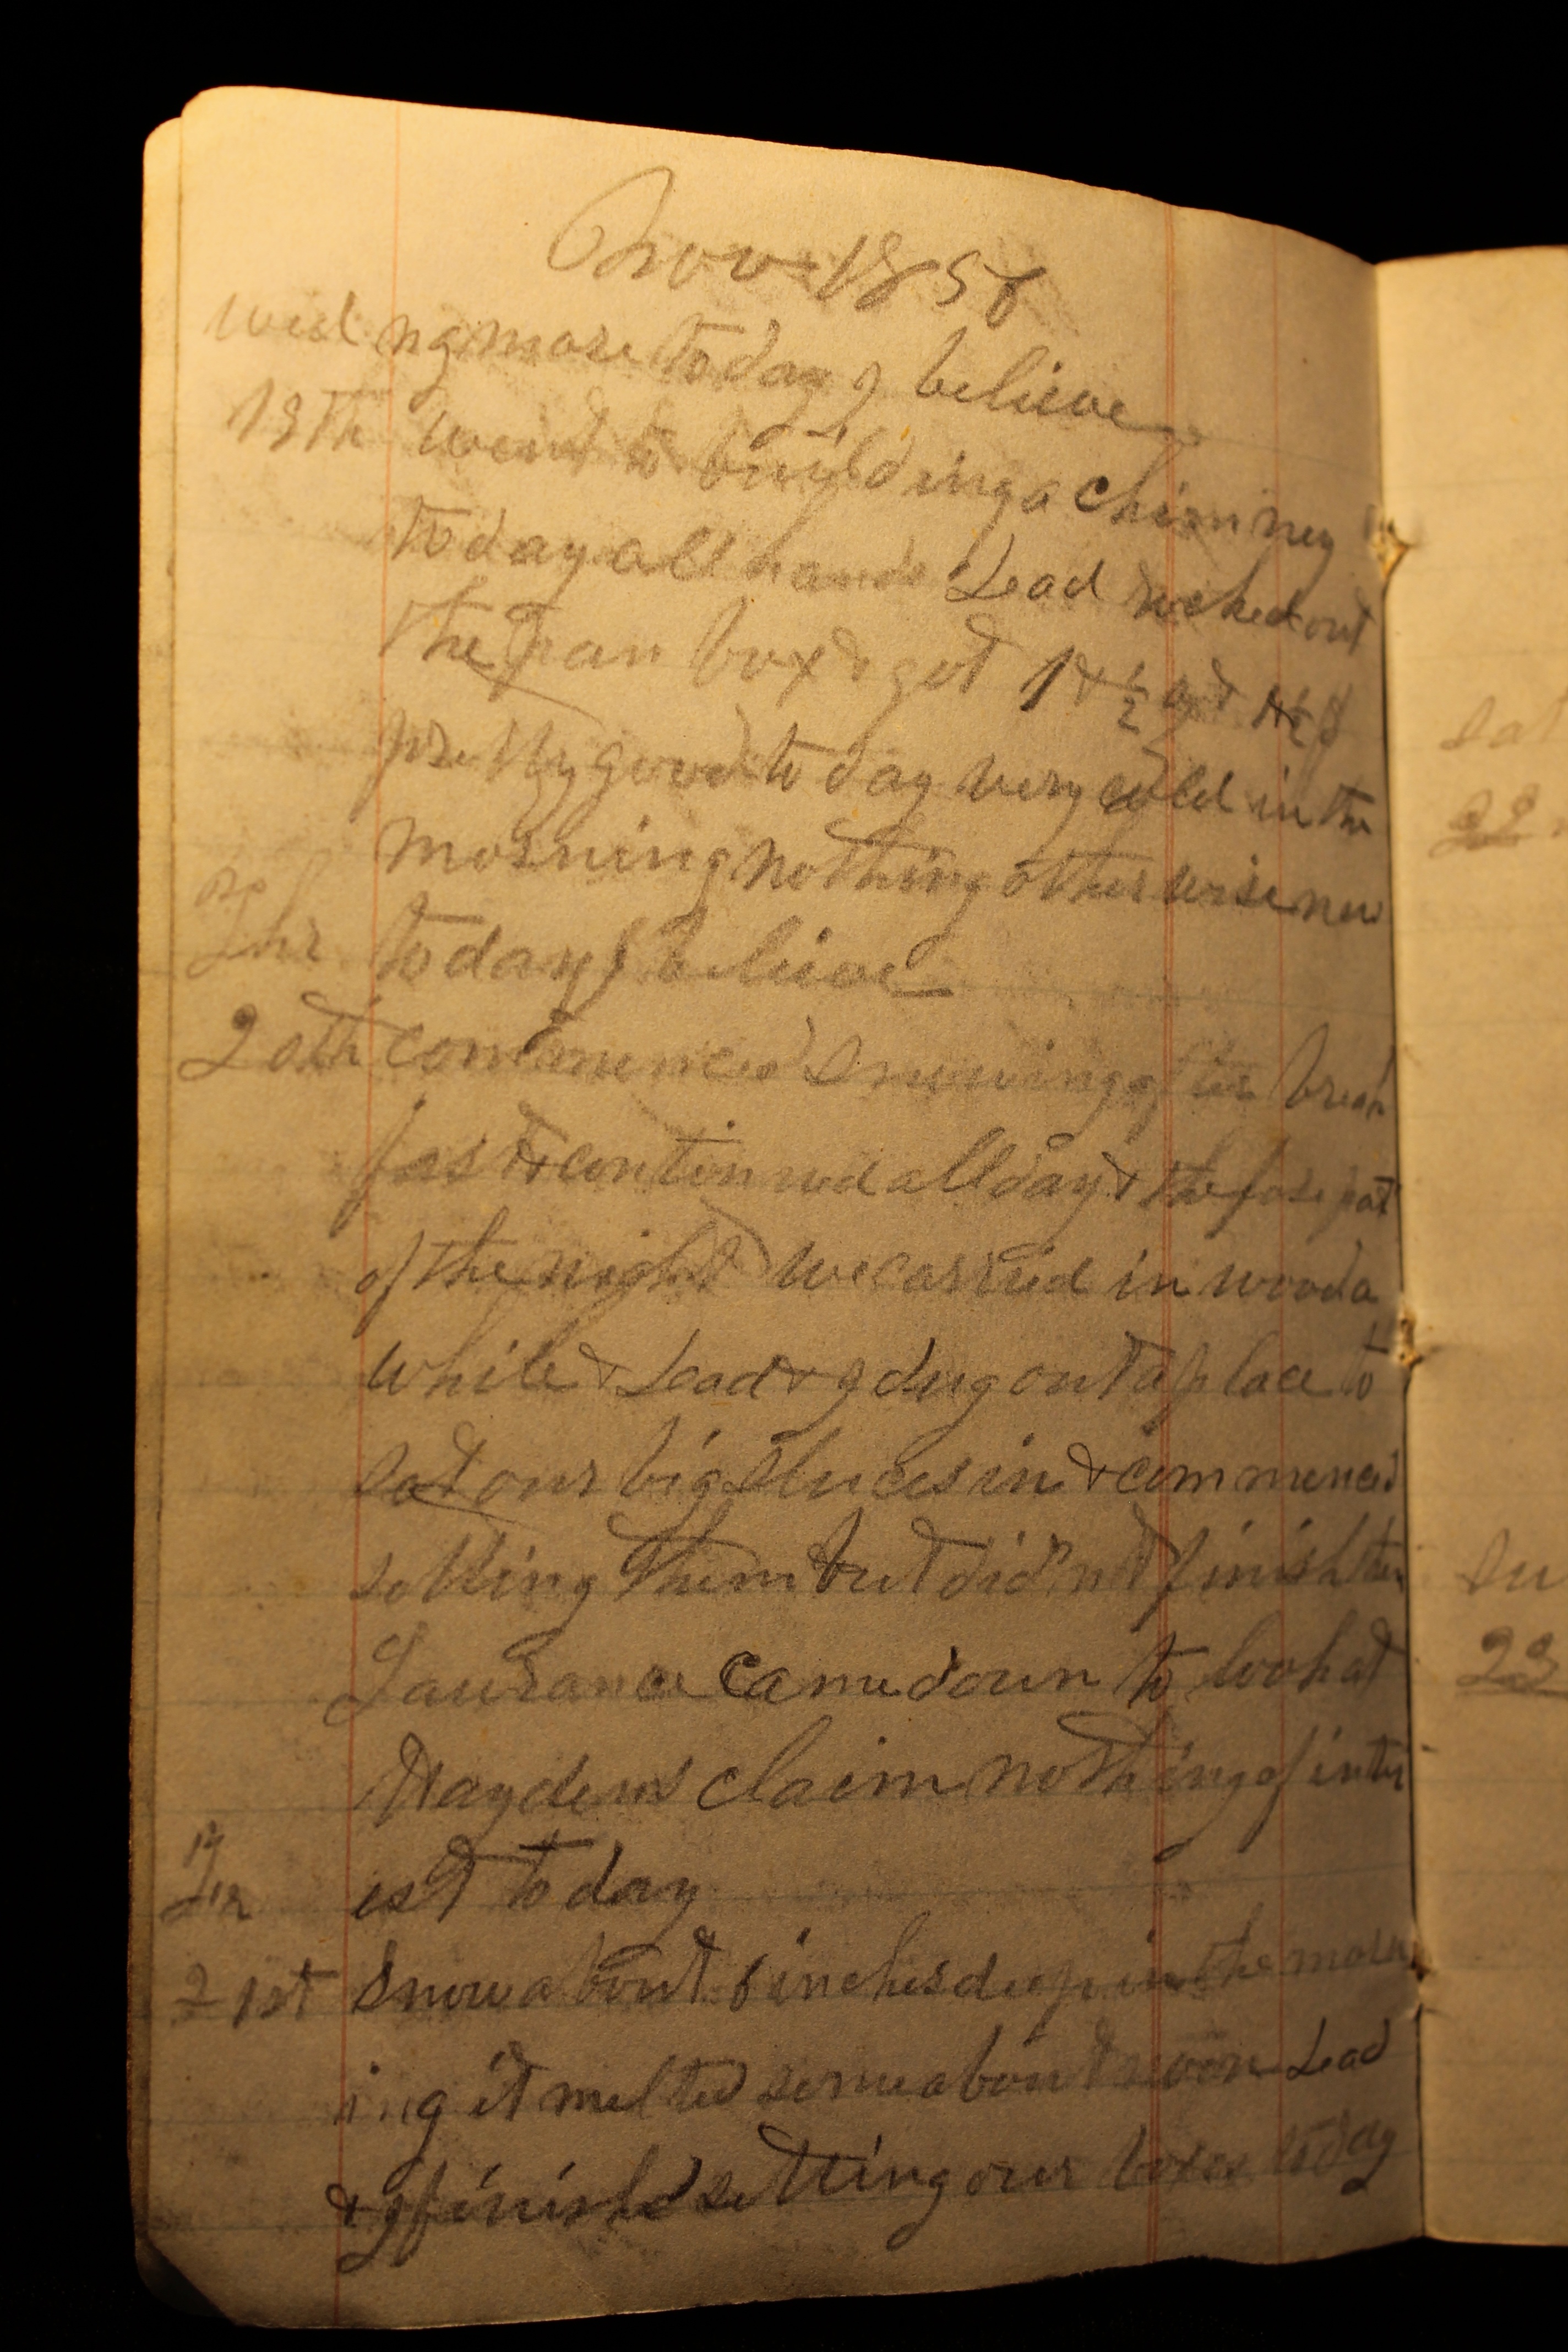 Nov 1856
wed no more today I believe
19th went to building a chimney
today all hands Lead rocked out
the pan box & got 1 & ½
pretty good to day very cold in the
morning nothing other wise new
Thr to day I believe
20th commenced snowing after break
fast & continued all day & the fore part
of the night we carried in wood a
while & Lead & I dug out a place to
set our big sluces in & commenced
setting them but did'nt finish them
Laurance came down to look at
Haydens claim nothing of inter
Fir est to day
21st Snow about 6 inches deep in the morn
ing it melted some about noon Lead
& I finishd setting our boxes today
sat
22
su
23